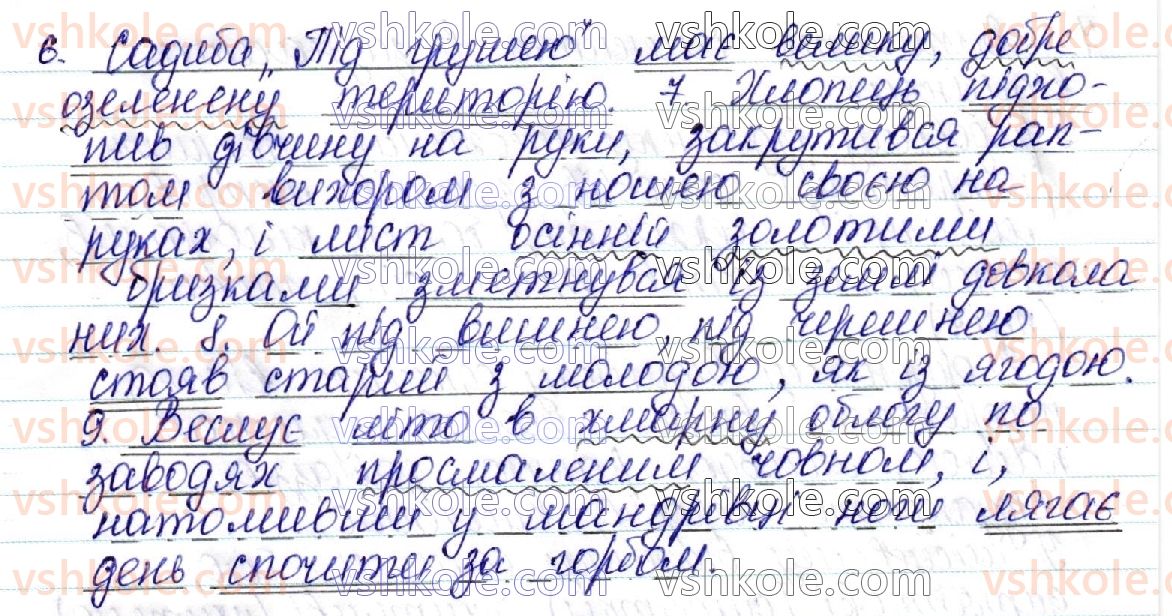 6. Садиба „Під грушею" має велику, добре
озеленену територію. 7 Хлопець підхо-
пив дівчину на руки, закрутився рап-
том вихором з ношею своєю на
руках, і лист осінній золотими
бризками зметнувся із землі довкола
них. 8. Ой під вишнею, під черешнею
стояв старий з молодою, як із ягодою.
9. Веслує літо в хмарну облогу по
заводях просмаленим човном, і,
натомивши у мандрівці ноги лягає
день спочити за горбом.